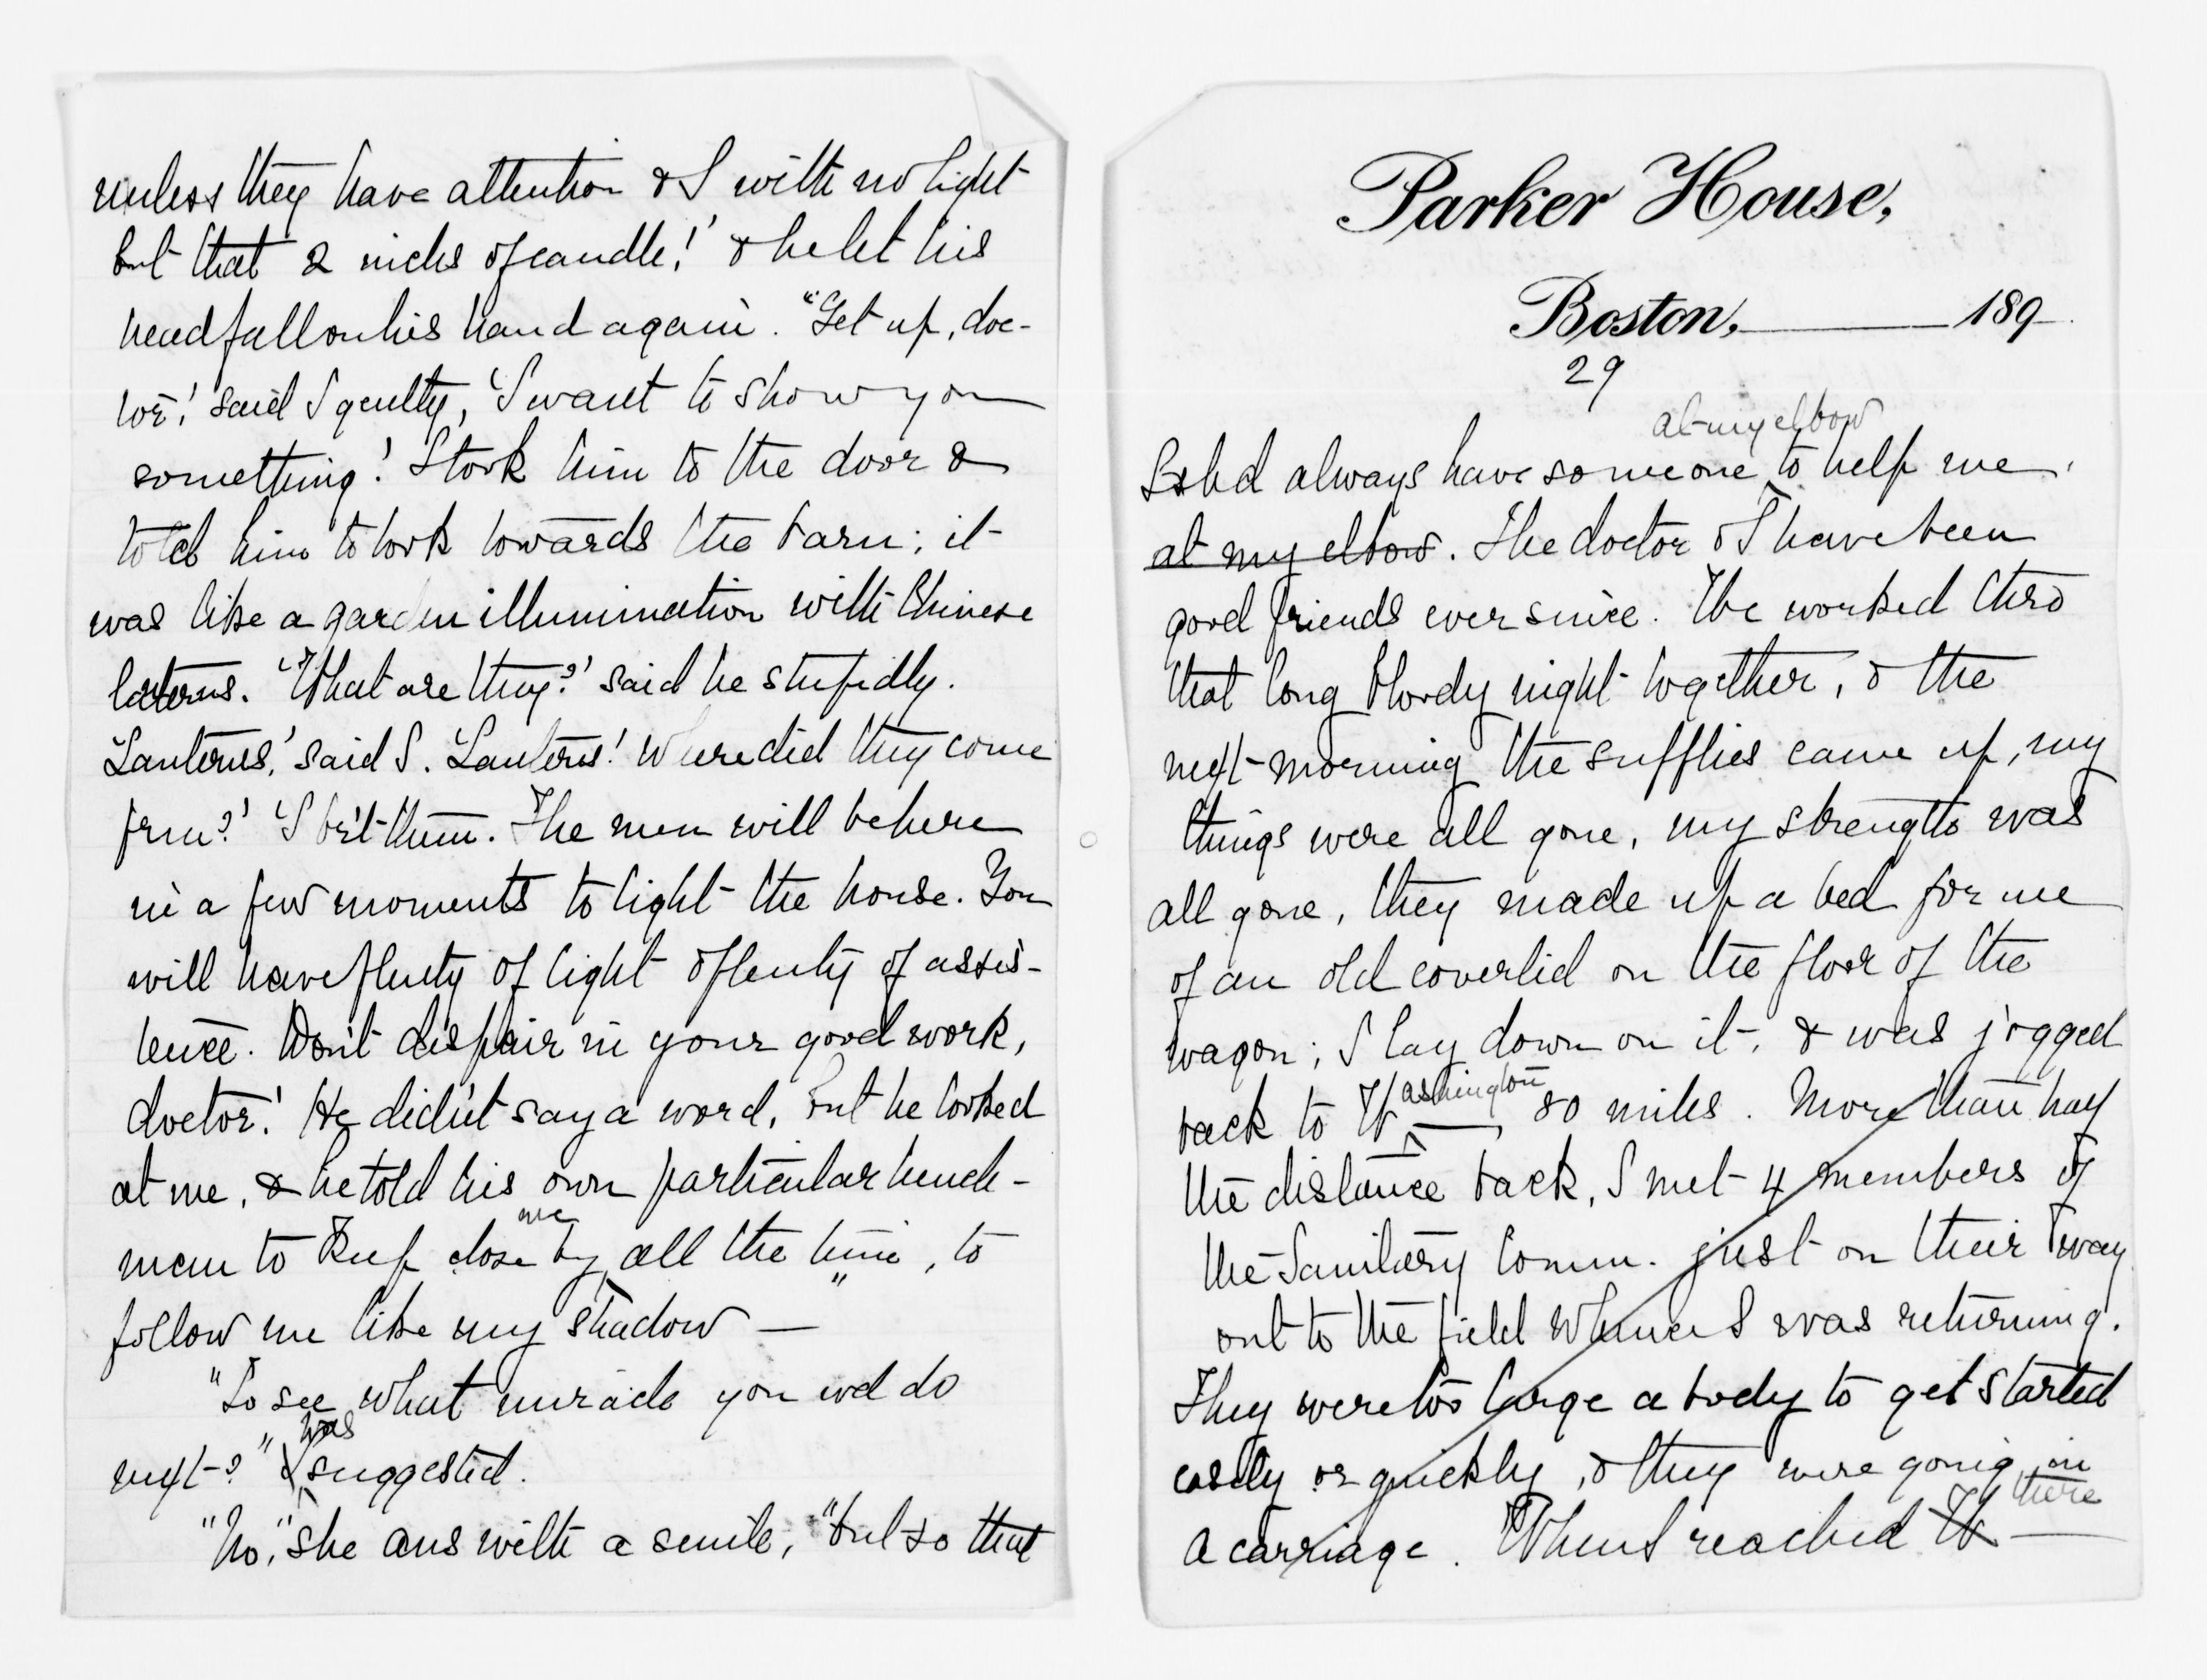 unless they have attention & I with no light
but that 2 inches of candle!' & he let his
head fall on his hand again. "Get up, doc-
tor!' said I gently, 'I want to show you
something!' I took him to the door &
told him to look towards the barn; it
was like a garden illumination with Chinese
lanterns. 'What are they?' said he stupidly.
'Lanterns,' said I. 'Lanterns! Where did they come
from?' 'I br't them. The men will be here
in a few moments to light the house. You
will have plenty of light & plenty of assis-
tence. Don't dispair in your good work,
doctor!' He didn't say a word, but he looked
at me, & he told his own particular hench-
men to keep close by me all the time, to
follow me like my shadow — "
"To see what miracle you wd do
next?" was suggested.
"No," she ans with a smile, "but so that
Parker House,
Boston, 189
29
at my elbow
I shd always have someone to help me.
at my elbow. The doctor & I have been
good friends ever since. We worked thro
that long bloody night together, & the
next morning the supplies came up, my
things were all gone, my strength was
all gone, they made up a bed for me
of an old coverlid on the floor of the
wagon; I lay down on it, & was jogged
back to Washington, 80 miles. More than half
the distance back, I met 4 members of
the Sanitary Comm. just on their way
out to the field whence I was returning.
They were too large a body to get started
easily or quickly, & they were going in
a carriage. When I reached W— there